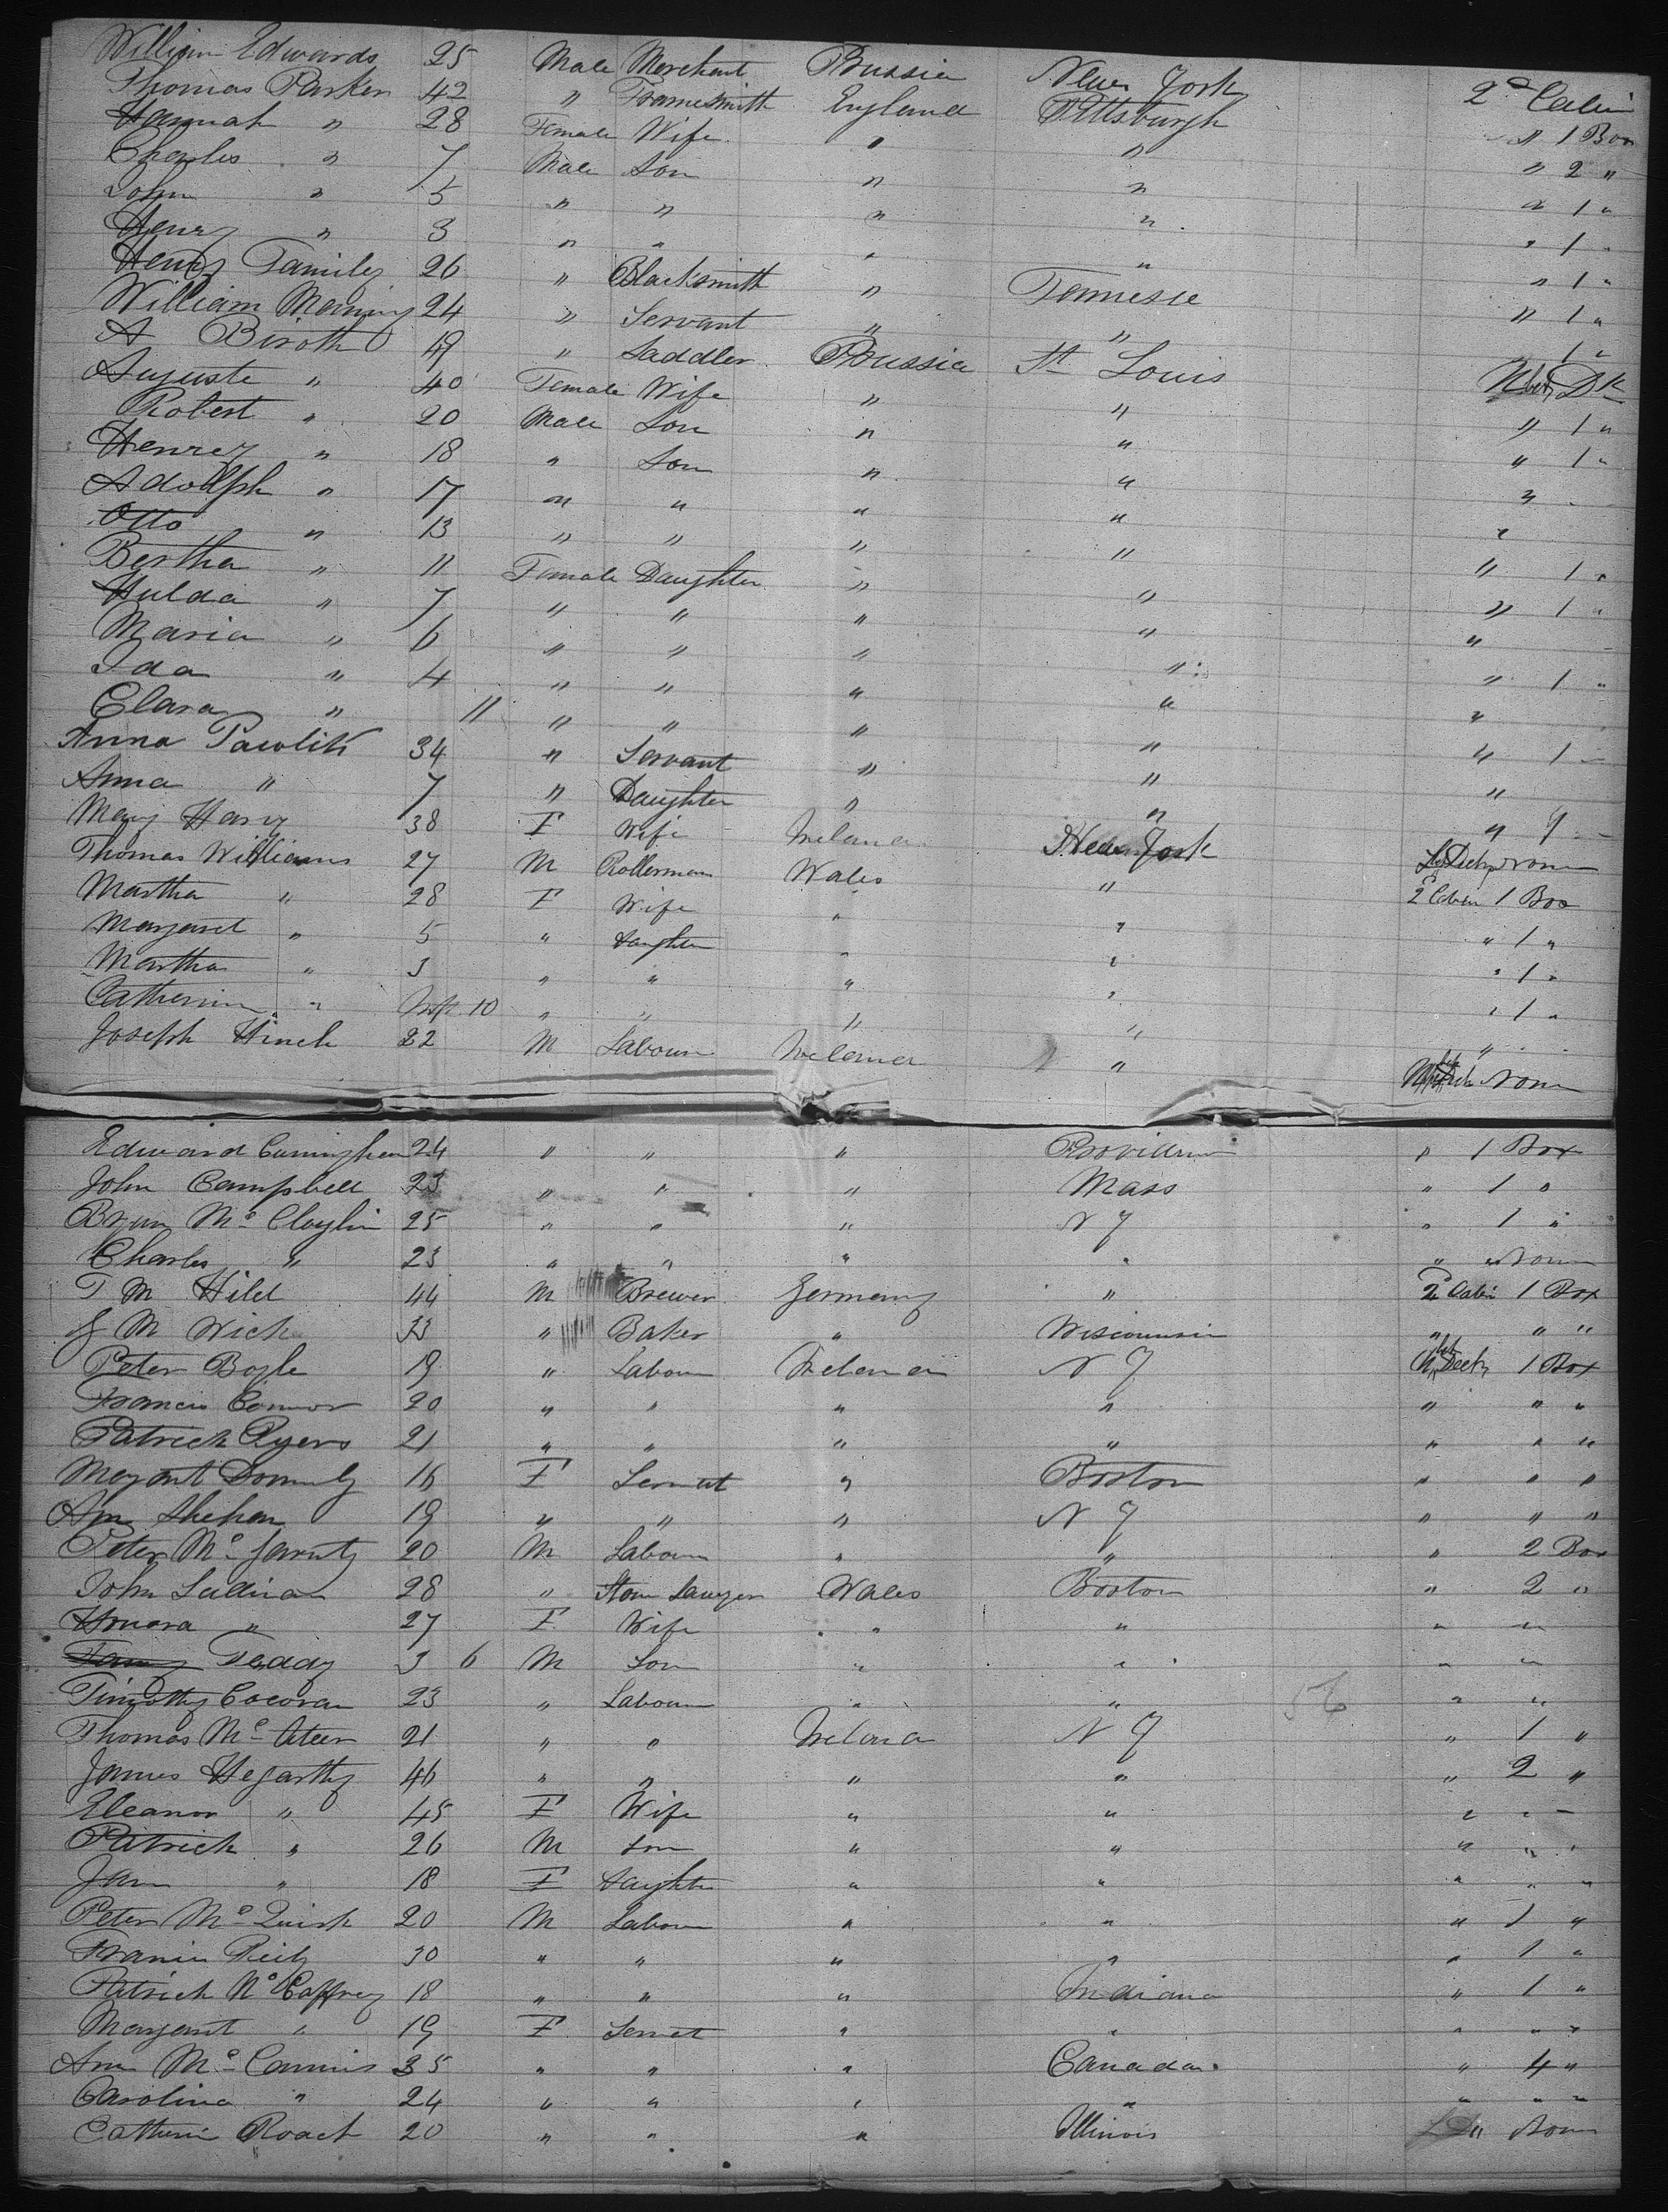 William Edwards 25 Male Merchant Prussia New York 2d Cabin
Thomas Parker 42 " Framesmith England Pittsburgh " 1 Box
Hannah " 28 Female Wife " " " 2 "
Charles " 7 Male Son " " " 1 "
John " 5 " " " " " 1 "
Henry " 3 " " " " " 1 "
Henry Family 26 " Blacksmith " Tennesse " 1 "
William Maning 24 " Servant " " " 1 "
A Biroth 49 " Saddler Prussia St Louis Dk
Auguste " 40 Female Wife " " " 1 "
Robert " 20 Male Son " " " 1 "
Henrey " 18 " Son " " "
Adolph " 17 " " " " "
Otto " 13 " " " " " 1 "
Bertha " 11 Female Daughter " " " 1 "
Hulda " 7 " " " " "
Maria " 6 " " " " " 1 "
Ida " 4 " " " " "
Clara " 11 " " " " " 1 "
Anna Pawlik 34 " Servant " " "
Anna " 7 " Daughter " " "
Mary Harvy 38 F Wife Ireland New York
Thomas Williams 27 M Rollerman Wales " 2d Cabin 1 Box
Martha " 28 F Wife " " " 1 "
Margaret " 5 " daughter " " " 1 "
Martha " 3 " " " " " 1 "
Catherine " Inft 10 " " " " "
Joseph Hinch 22 M Labour Ireland " None
Edward Cuningham 24 " " " Providence " 1 Box
John Campbell 23 " " " Mass " 1 "
Bryan Mc Cloglin 25 " " " N Y " 1 "
Charles " 23 " " " " " None
T M Hild 44 M Brewer Germany " 2d Cabin 1 Box
J M Wick 33 " Baker " Wisconnsin " " "
Peter Boyle 19 " Labour Ireland N Y Deck 1 Box
Francis Connor 20 " " " " " " "
Patrick Ayers 21 " " " " " " "
Margant Donnely 16 F Servant " Boston " " "
Ann Shehan 19 " " " N Y " " "
Peter Mc 20 M Labour " " " 2 Box
John Sullivan 28 " Stone Sawyer Wales Boston " 2 "
Honora " 27 F Wife " " " "
Teady 3 6 M Son " " " "
Timothy Cocoran 23 " Labour " " " "
Thomas Mc Ateer 21 " " Ireland N Y " 1 "
James Hegarthy 46 " " " " " 2 "
Eleanor " 45 F Wife " " " "
Patrick " 26 M Son " " " "
Jane " 18 F daughter " " " " "
Peter Mc Quirk 20 M Labour " " " 1 "
Francis Reily 30 " " " " " 1 "
Patrick Mc Caffrey 18 " " " Indiana " 1 "
Margant " 19 F Servant " " " " "
Ann Mc Cannis 35 " " " Canada " 4 "
Carolina " 24 " " " " " " "
Catherin Roach 20 " " " Illinois None